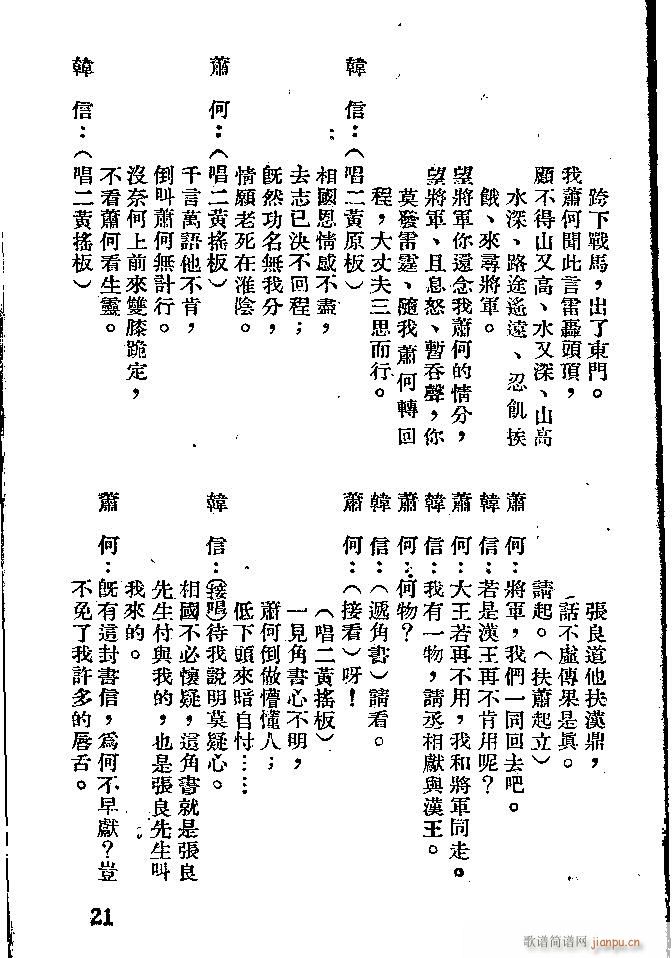 跨下戰馬，出了東門。
我蕭何聞此言雷轟頭頂，
顧不得山又高、水又深、山高
水深、路途遙遠、忍飢挨
餓、來尋將軍。
望將軍你還念我蕭何的情分，
望將軍、且息怒、暫吞聲，你
莫發雷霆、隨我蕭何轉回
程，大丈夫三思而行。
韓信：（唱二黃原板）
相國恩情感不盡，
去志已決不回程；
旣然功名無我分，
情願老死在淮陰。
蕭何：（唱二黃搖板）
千言萬語他不肯，
倒叫蕭何無計行。
沒奈何上前來雙膝跪定，
不看蕭何看生靈。
韓信：（唱二黃搖板）
張良道他扶漢鼎，
話不虛傳果是眞。
請起。（扶蕭起立）
蕭何：將軍，我們一同回去吧。
韓信：若是漢王再不肯用呢？
蕭何：大王若再不用，我和將軍同走。
韓信：我有一物，請丞相獻與漢王。
蕭何：何物？
韓信：（遞角書）請看。
蕭何：（接看）呀！
（唱二黃搖板）
一見角書心不明，
蕭何倒做懵懂人；
低下頭來暗自忖……
韓信：（接唱）待我說明莫疑心。
相國不必懷疑，這角書就是張良
先生付與我的，也是張良先生叫
我來的。
蕭何：旣有這封書信，爲何不早獻？豈
不免了我許多的唇舌。
21
歌谱简谱网 jianpu.cn